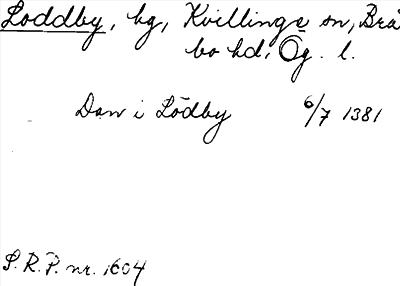 Loddby, hg, Kvillinge sn, Brå
bo hd, Ög. l.
Dan i Lödby 6/7 1381
S.R.P. nr. 1604